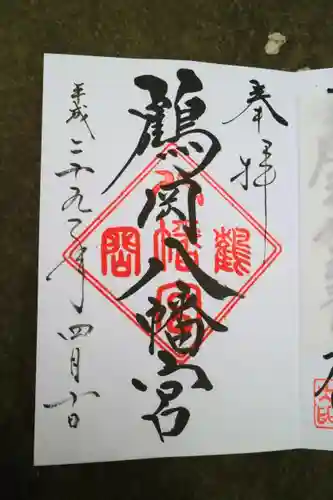 奉拝
鶴岡八幡宮
平成二十九年四月十日